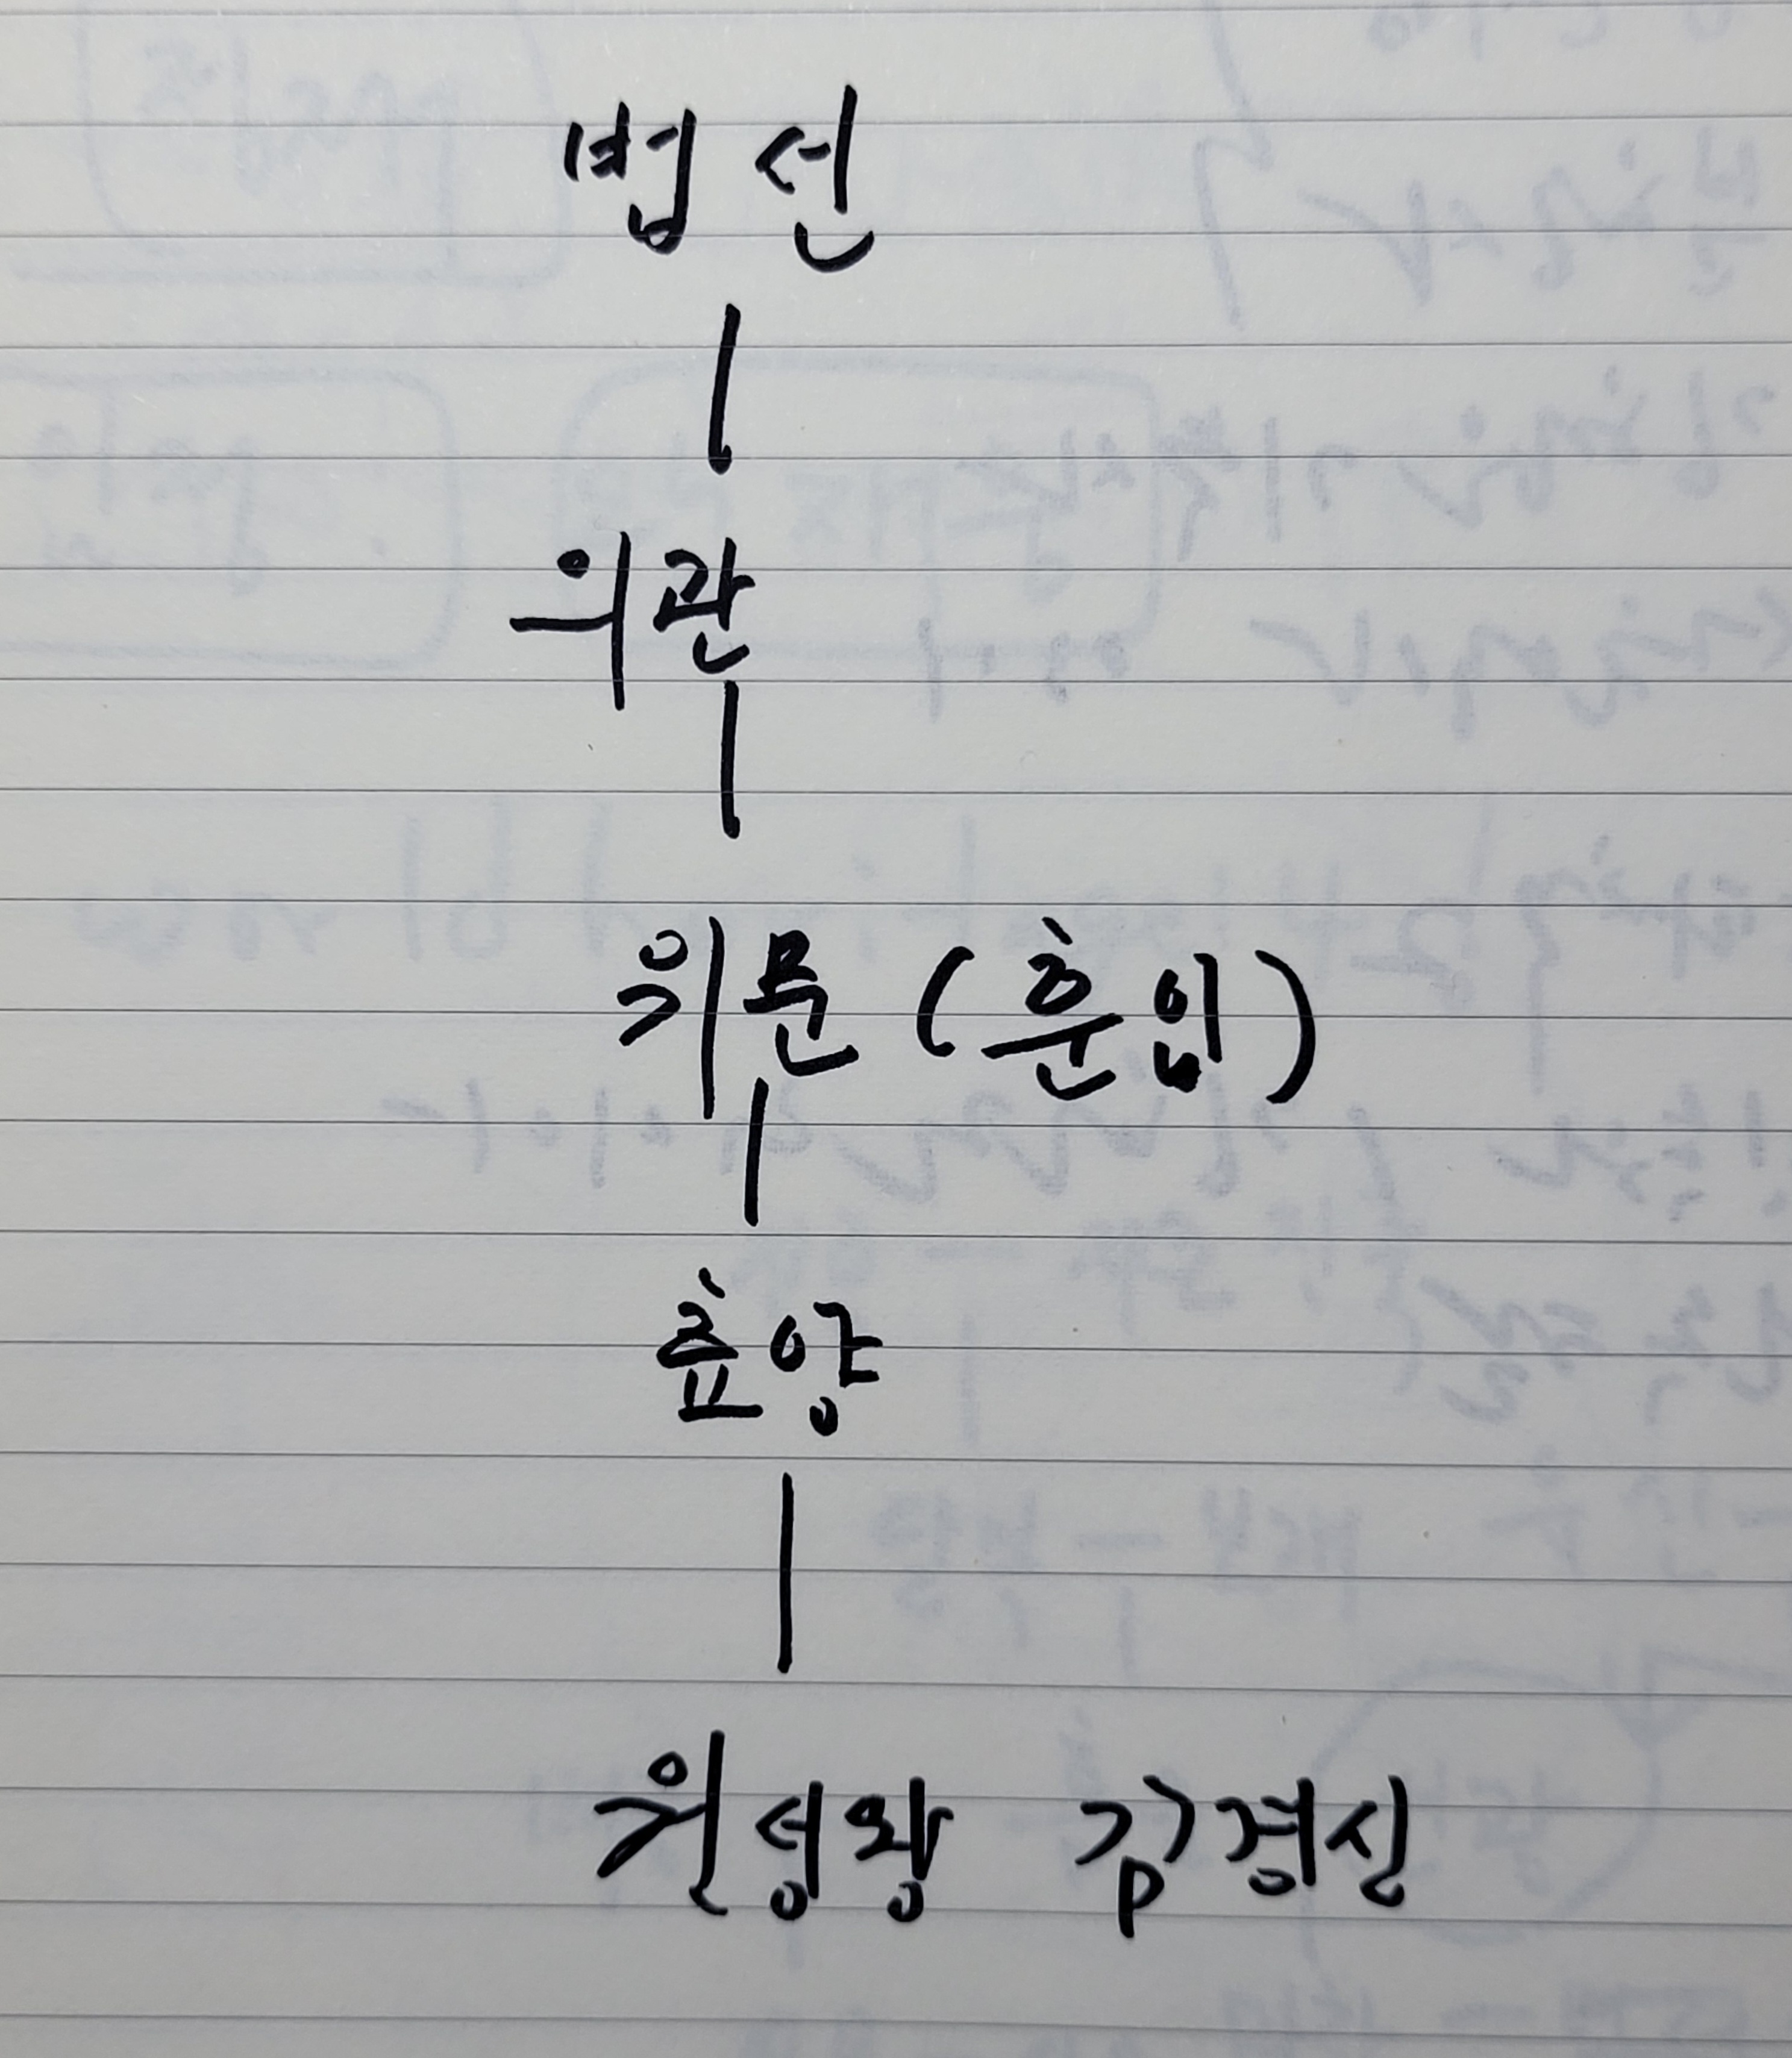 법선
의관
위문 (훈입)
효양
원성왕 김경신